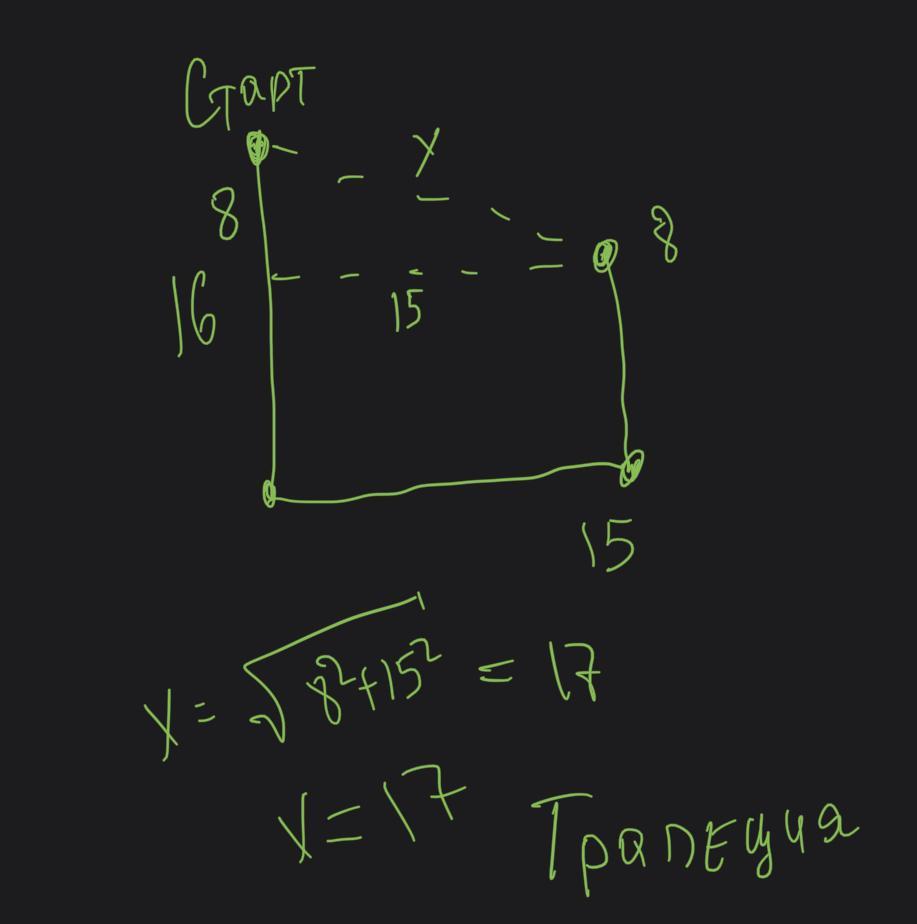 Старт
X
8
8
16
15
15
X = √8²+15² = 17
X = 17
Трапеция